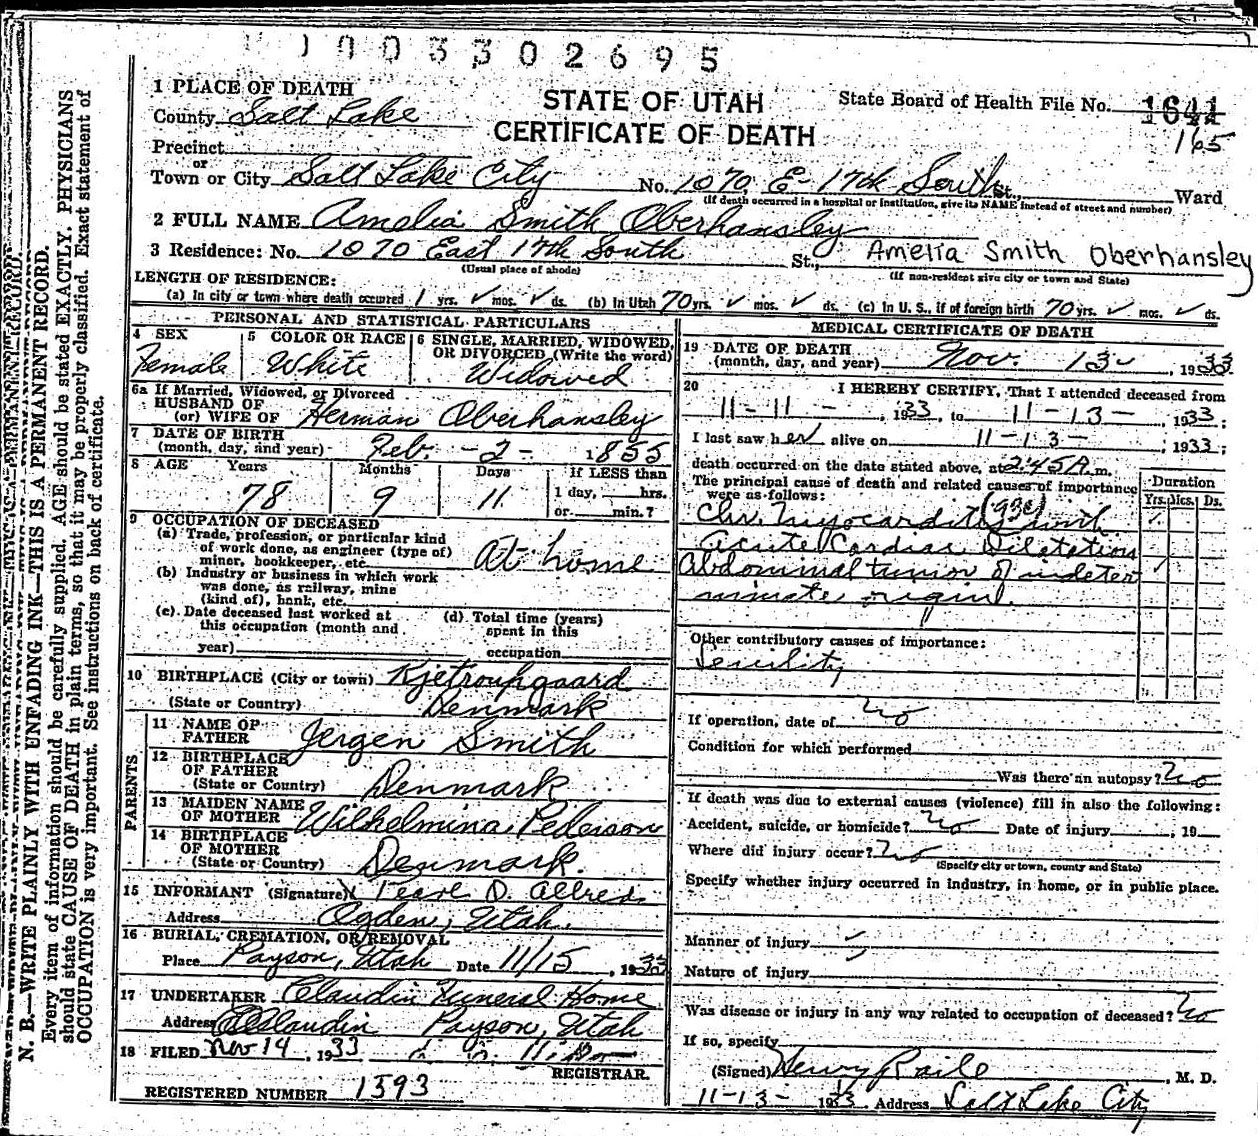 1003302695
1 PLACE OF DEATH
County Salt Lake
STATE OF UTAH
CERTIFICATE OF DEATH
State Board of Health File No. 1641
165
Precinct
or
Town or City Salt Lake City No. 1070 E- 17th South St., Ward
(If death occurred in a hospital or institution, give its NAME instead of street and number)
2 FULL NAME Amelia Smith Oberhansley
3 Residence: No. 1070 East 17th South St., Amelia Smith Oberhansley
(Usual place of abode) (If non-resident give city or town and State)
LENGTH OF RESIDENCE:
(a) In city or town where death occurred 1 yrs. ✓ mos. ✓ ds. (b) In Utah 70 yrs. ✓ mos. ✓ ds. (c) In U. S., if of foreign birth 70 yrs. ✓ mos. ✓ ds.
PERSONAL AND STATISTICAL PARTICULARS
4 SEX 5 COLOR OR RACE 6 SINGLE, MARRIED, WIDOWED, OR DIVORCED (Write the word)
Female White Widowed
6a If Married, Widowed, or Divorced
HUSBAND OF
(or) WIFE OF Herman Oberhansley
7 DATE OF BIRTH
(month, day, and year) Feb. - 2 - 1855
8 AGE Years Months Days If LESS than
78 9 11 1 day, hrs.
or min.?
9 OCCUPATION OF DECEASED
(a) Trade, profession, or particular kind
of work done, as engineer (type of)
miner, bookkeeper, etc. At home
(b) Industry or business in which work
was done, as railway, mine
(kind of), bank, etc.
(c) Date deceased last worked at
this occupation (month and
year)
(d) Total time (years)
spent in this
occupation
10 BIRTHPLACE (City or town) Kjetroupgaard
(State or Country) Denmark
PARENTS
11 NAME OF
FATHER Jergen Smith
12 BIRTHPLACE
OF FATHER
(State or Country) Denmark
13 MAIDEN NAME
OF MOTHER Wilhelmina Pederson
14 BIRTHPLACE
OF MOTHER
(State or Country) Denmark.
15 INFORMANT (Signature) Pearl O. Allred
Address Ogden, Utah.
16 BURIAL, CREMATION, OR REMOVAL
Place Payson, Utah Date 11/15, 1933
17 UNDERTAKER Claudin Funeral Home
Address Claudin Payson, Utah
18 FILED Nov 14, 1933
REGISTRAR.
REGISTERED NUMBER 1593
MEDICAL CERTIFICATE OF DEATH
19 DATE OF DEATH
(month, day, and year) Nov. 13 - , 1933.
20 I HEREBY CERTIFY, That I attended deceased from
11-11- , 1933, to 11-13- , 1933;
I last saw her alive on 11-13- , 1933;
death occurred on the date stated above, at 2:45 A. m.
The principal cause of death and related causes of importance
were as follows:
Duration
Yrs. Mos. Ds.
(93c)
Chr. Myocarditis with
acute Cardiac Dilatation
Abdominal tumor of indeter
minate origin.
Other contributory causes of importance:
Senility
If operation, date of no
Condition for which performed
Was there an autopsy? No
If death was due to external causes (violence) fill in also the following:
Accident, suicide, or homicide? No Date of injury , 19
Where did injury occur? No
(Specify city or town, county and State)
Specify whether injury occurred in industry, in home, or in public place.
Manner of injury
Nature of injury
Was disease or injury in any way related to occupation of deceased? No
If so, specify
(Signed) Henry Raile , M. D.
11-13- 1933 Address Salt Lake City
N. B.—WRITE PLAINLY WITH UNFADING INK—THIS IS A PERMANENT RECORD.
Every item of information should be carefully supplied. AGE should be stated EXACTLY. PHYSICIANS
should state CAUSE OF DEATH in plain terms, so that it may be properly classified. Exact statement of
OCCUPATION is very important. See instructions on back of certificate.